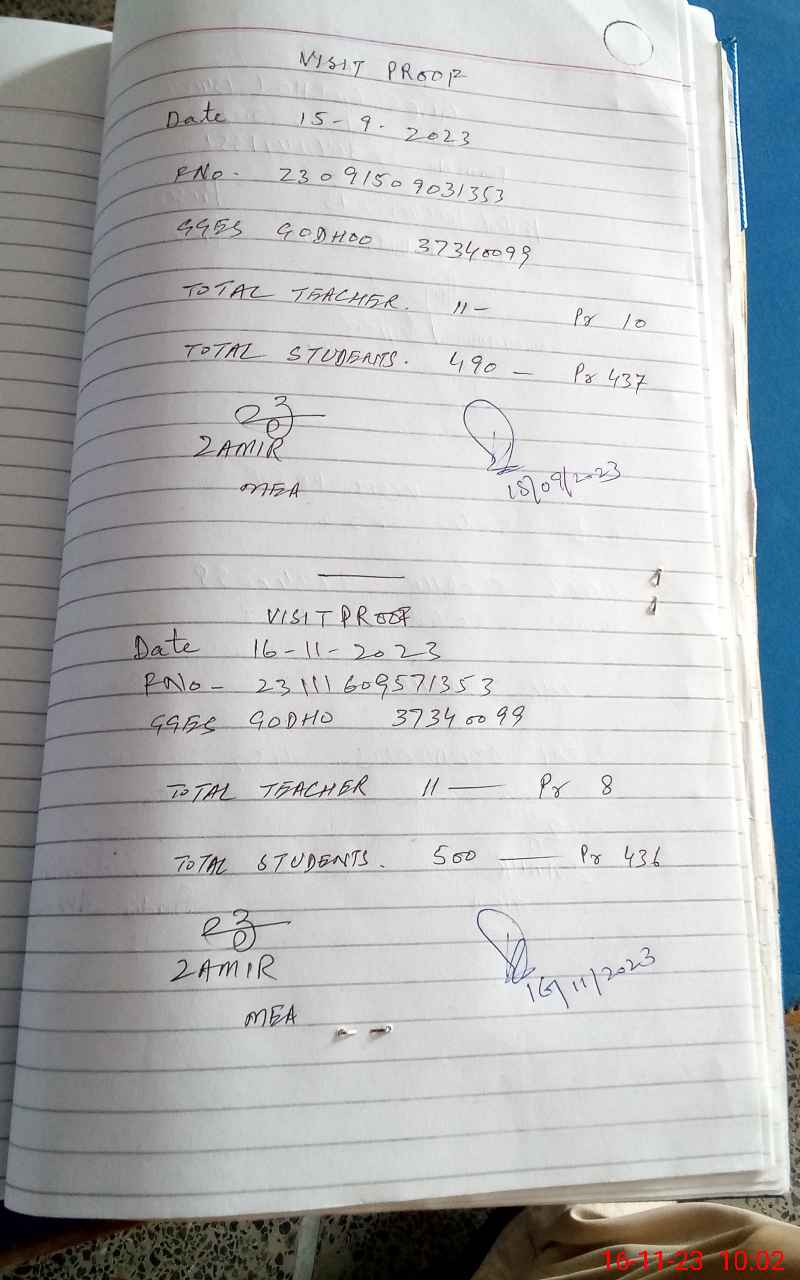 VISIT PROOF
Date 15-9-2023
RNo. 23091509031353
GGES GODHOO 37340099
TOTAL TEACHER. 11- Pr 10
TOTAL STUDENTS. 490 - Pr 437
ZAMIR
MEA
15/09/2023
VISIT PROOF
Date 16-11-2023
RNo- 23111609571353
GGES GODHO 37340099
TOTAL TEACHER 11 — Pr 8
TOTAL STUDENTS. 500 — Pr 436
ZAMIR
MEA
16/11/2023
16-11-23 10.02